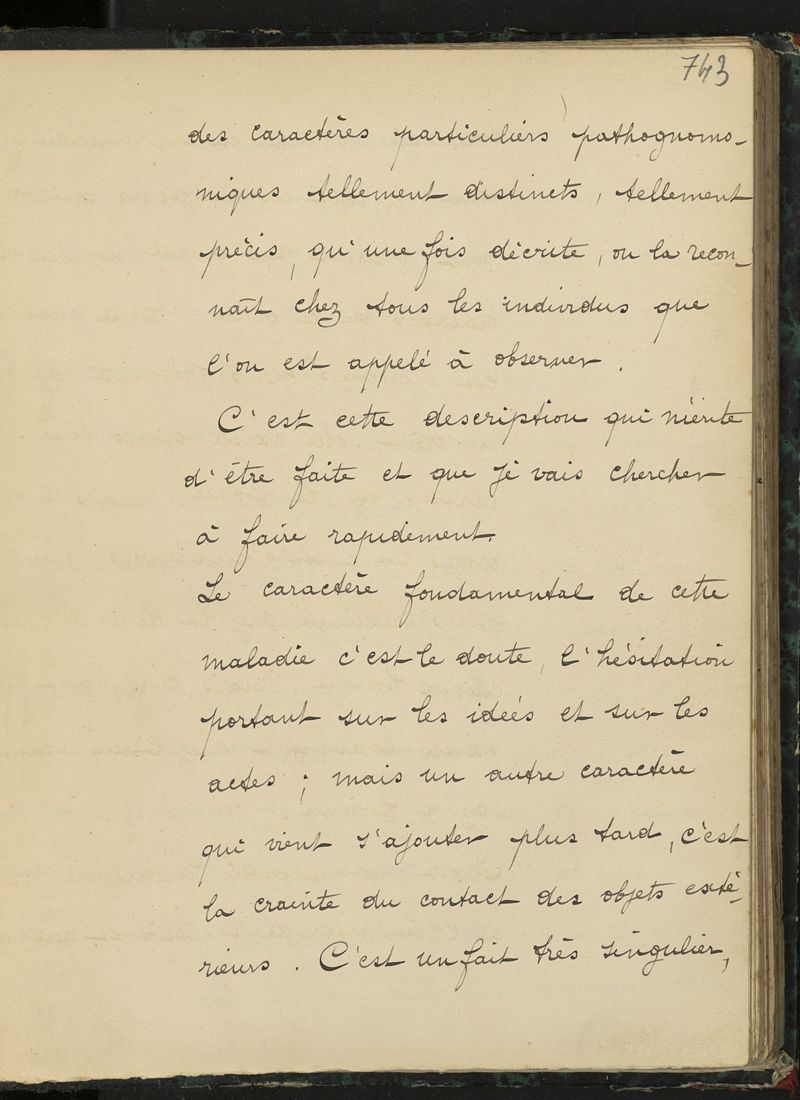 743
des caractères particuliers pathognomo-
niques tellement distincts, tellement
précis, qu'une fois décrite, on la recon-
naît chez tous les individus que
l'on est appelé à observer.
C'est cette description qui mérite
d'être faite et que je vais chercher
à faire rapidement.
Le caractère fondamental de cette
maladie c'est le doute, l'hésitation
portant sur les idées et sur les
actes ; mais un autre caractère
qui vient s'ajouter plus tard, c'est
la crainte du contact des objets exté-
rieurs. C'est un fait très singulier,